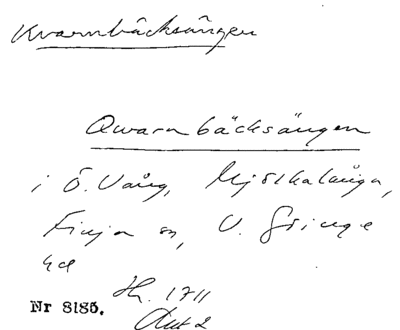 Kvarnbäcksängen
Qwarnbäcksängen
i Ö. Vång, Mjölkalånga,
Finja sn, V. Göinge
hd
Hr. 1711
Akt 2
Nr 8185.